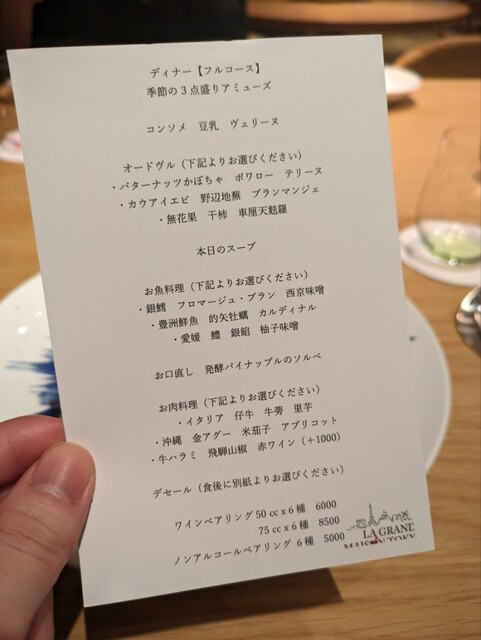 ディナー【フルコース】
季節の3点盛りアミューズ
コンソメ 豆乳 ヴェリーヌ
オードヴル(下記よりお選びください)
・バターナッツかぼちゃ ポワロー テリーヌ
・カウアイエビ 野辺地蕪 ブランマンジェ
・無花果 干柿 車厘天麩羅
本日のスープ
お魚料理(下記よりお選びください)
・銀鱈 フロマージュ・ブラン 西京味噌
・豊洲鮮魚 的矢牡蠣 カルディナル
・愛媛 鱧 銀餡 柚子味噌
お口直し 発酵パイナップルのソルベ
お肉料理(下記よりお選びください)
・イタリア 仔牛 牛蒡 里芋
・沖縄 金アグー 米茄子 アプリコット
・牛ハラミ 飛騨山椒 赤ワイン(+1000)
デセール(食後に別紙よりお選びください)
ワインペアリング50 cc x 6種 6000
75 cc x 6種 8500
ノンアルコールペアリング 6種 5000
LA GRANDE